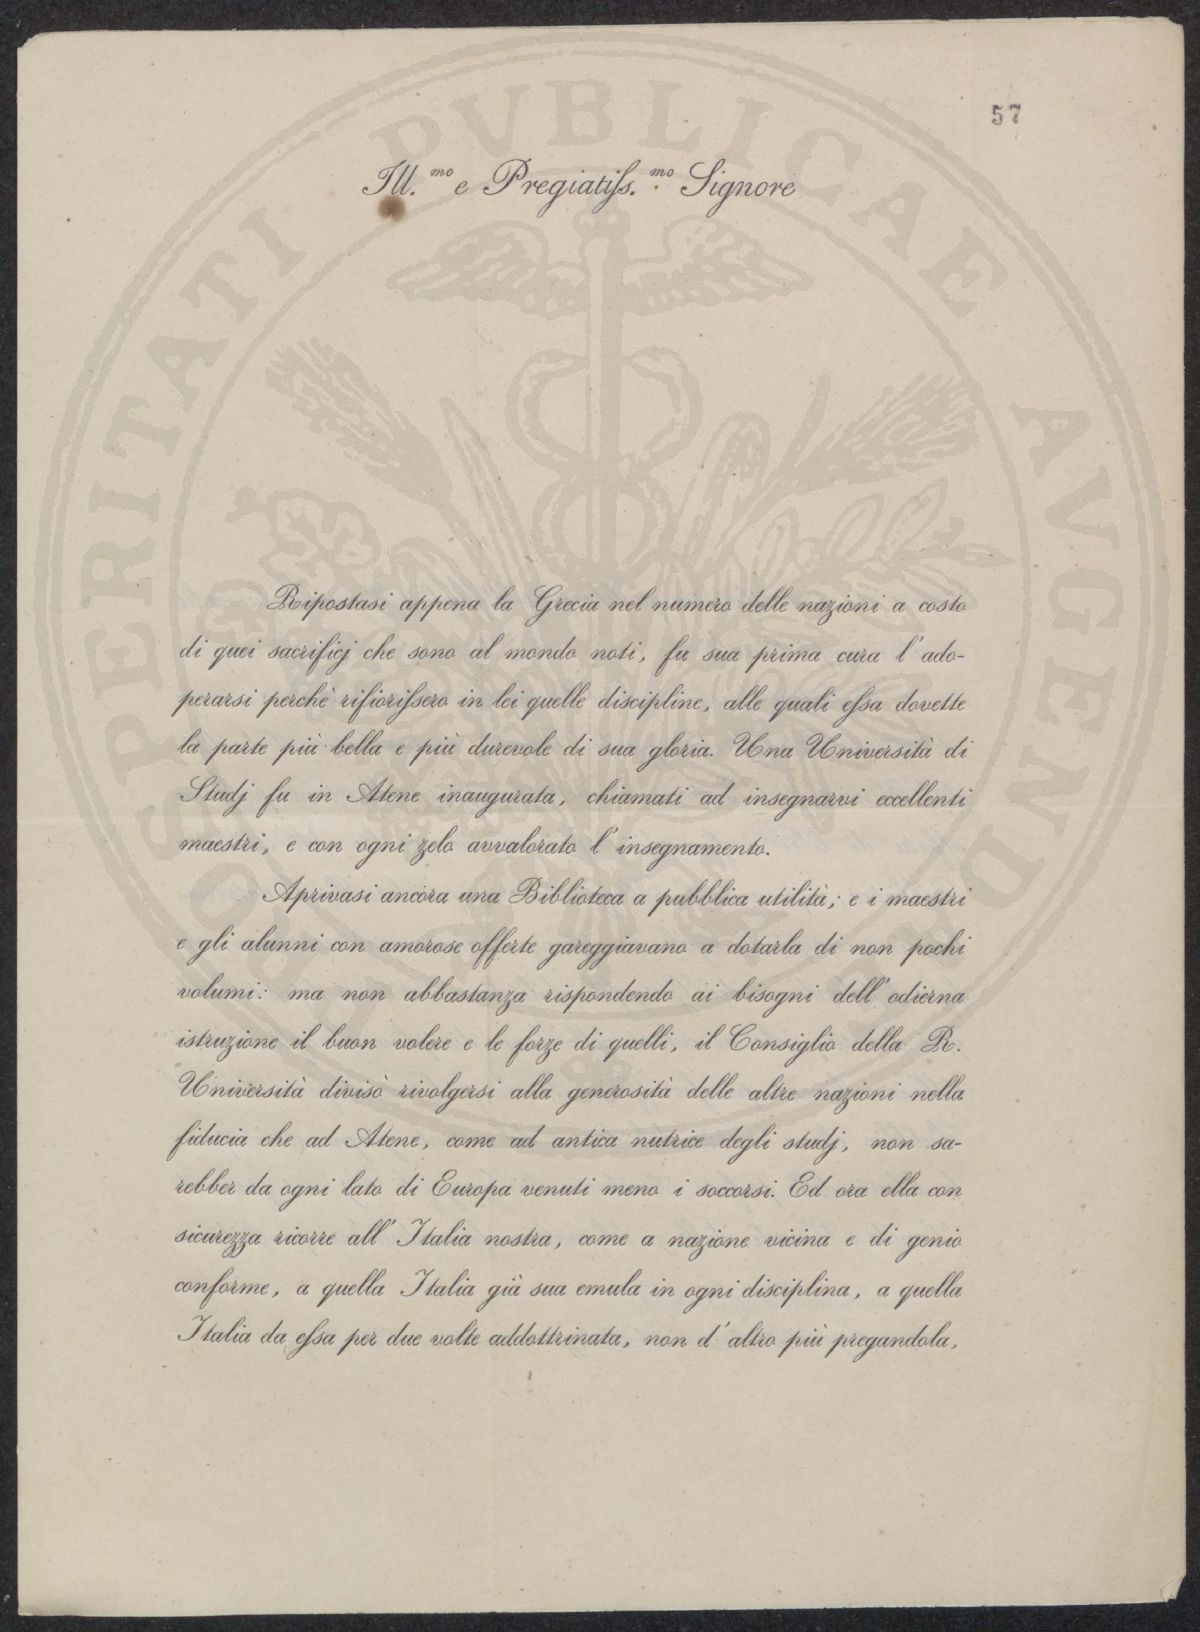 57
Ill.mo e Pregiatiſs.mo Signore
Ripostasi appena la Grecia nel numero delle nazioni a costo
di quei sacrificj che sono al mondo noti, fu sua prima cura l' ado-
perarsi perchè rifioriſsero in lei quelle discipline, alle quali eſsa dovette
la parte più bella e più durevole di sua gloria. Una Università di
Studj fu in Atene inaugurata, chiamati ad insegnarvi eccellenti
maestri, e con ogni zelo avvalorato l' insegnamento.
Aprivasi ancora una Biblioteca a pubblica utilità; e i maestri
e gli alunni con amorose offerte gareggiavano a dotarla di non pochi
volumi: ma non abbastanza rispondendo ai bisogni dell' odierna
istruzione il buon volere e le forze di quelli, il Consiglio della R.
Università divisò rivolgersi alla generosità delle altre nazioni nella
fiducia che ad Atene, come ad antica nutrice degli studj, non sa-
rebber da ogni lato di Europa venuti meno i soccorsi. Ed ora ella con
sicurezza ricorre all' Italia nostra, come a nazione vicina e di genio
conforme, a quella Italia già sua emula in ogni disciplina, a quella
Italia da eſsa per due volte addottrinata, non d' altro più pregandola,
PROSPERITATI PVBLICAE AVGENDAE